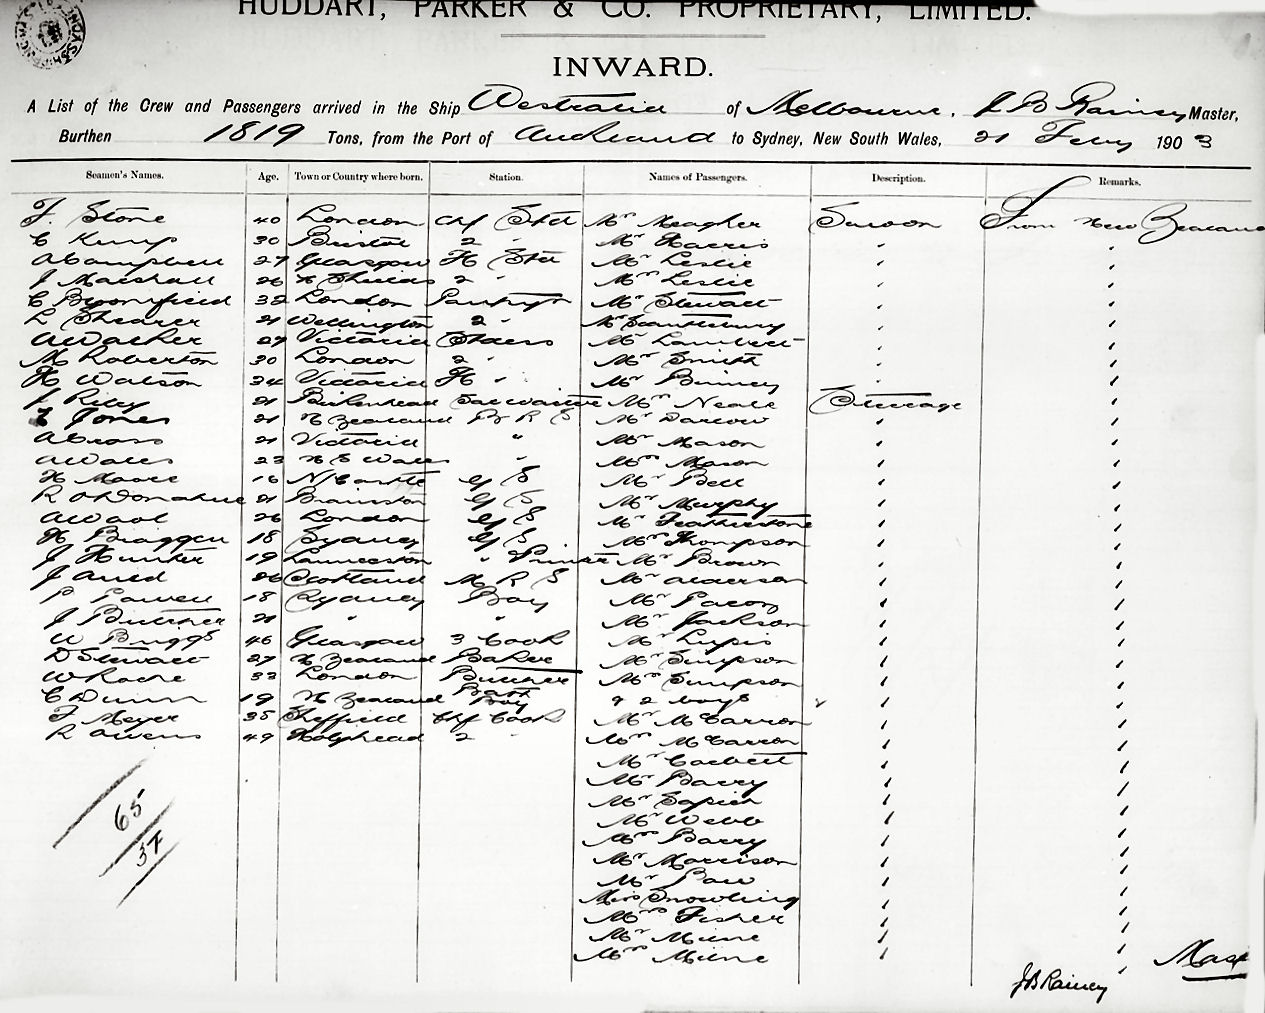 HUDDART, PARKER & CO. PROPRIETARY, LIMITED.
INWARD.
A List of the Crew and Passengers arrived in the Ship Westralia of Melbourne, J B Rainey Master,
Burthen 1819 Tons, from the Port of Auckland to Sydney, New South Wales, 21 Feby 1903
Seamen's Names. Age. Town or Country where born. Station. Names of Passengers. Description. Remarks.
F. Stone 40 London Chf Std Mr Meagher Saloon From New Zealand
C Kemp 30 Bristol 2 " Mr Harris "
A Campbell 27 Glasgow F Std Mr Leslie "
J Marshall 26 N Shields 2 " Mrs Leslie "
C Bromfield 32 London Pantryn Mr Stewart "
L Shearer 21 Wellington 2 " Mr "
A Walker 27 Victoria Stdess Mr Lambert "
M Roberton 30 London 2 " Mr Smith "
H Watson 34 Victoria F " Mr Binney "
J Riley 21 Birkenhead Mrs Neale Steerage "
E Jones 21 N Zealand B R S Mr Darlow "
A Cross 21 Victoria " Mr Mason "
A Wales 23 N S Wales " Mrs Mason "
H Moore 16 N/Castle G S Mr Bell "
R O'Donahue 21 G S Mr Murphy "
A Wool 26 London G S Mr Featherstone "
H Braggen 18 Sydney G S Mrs Thompson "
J Hunter 19 Launceston " Printer Mr Brown "
J Auld 26 Scotland M R S Mr Alderson "
P Powell 18 Sydney Boy Mr "
J Butcher 21 " " Mr Jackson "
W Briggs 46 Glasgow 3 Cook Mr Lupis "
D Stewart 27 N Zealand Baker Mr Simpson "
W Roche 32 London Butcher Mrs Simpson "
C Dunn 19 N Zealand Boy & 2 boys "
F Meyer 35 Sheffield Chf Cook Mr McCarron "
R Owens 49 Holyhead 2 " Mrs McCarron "
Mr Corbett "
Mr Barry "
Mr "
Mr Webb "
Mrs Barry "
Mr Morrison "
Mr "
Miss Snowling "
Mrs Fisher "
Mr Milne "
Mrs Milne "
65
37
JB Rainey Mast